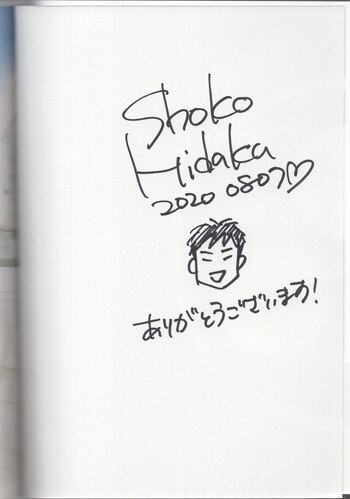 Shoko
Hidaka
2020 0807♡
ありがとうございます!